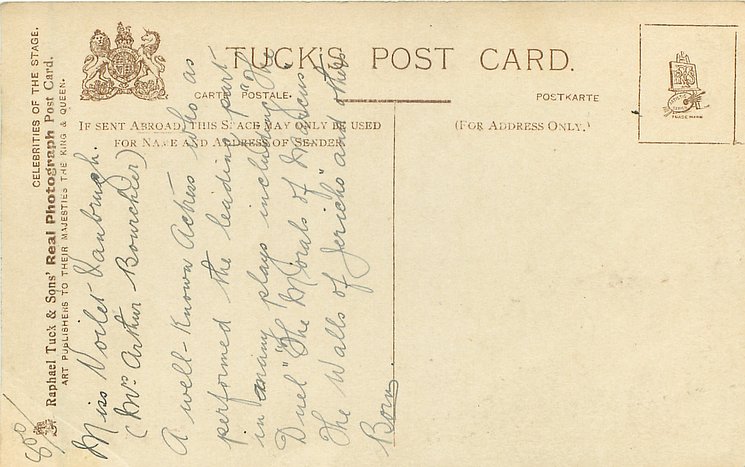 TUCK'S POST CARD.
CARTE POSTALE.
POSTKARTE
IF SENT ABROAD, THIS SPACE MAY ONLY BE USED
FOR NAME AND ADDRESS OF SENDER.
(FOR ADDRESS ONLY.)
TRADE MARK
CELEBRITIES OF THE STAGE.
Raphael Tuck & Sons' Real Photograph Post Card.
ART PUBLISHERS TO THEIR MAJESTIES THE KING & QUEEN.
Miss Voilet Vanbrugh.
(Mrs Arthur Bourchier)
A well-known Actress who as
performed the leading part
in many plays including "The
Duel" "The Morals of Marcus"
"The Walls of Jericho" and others
Born